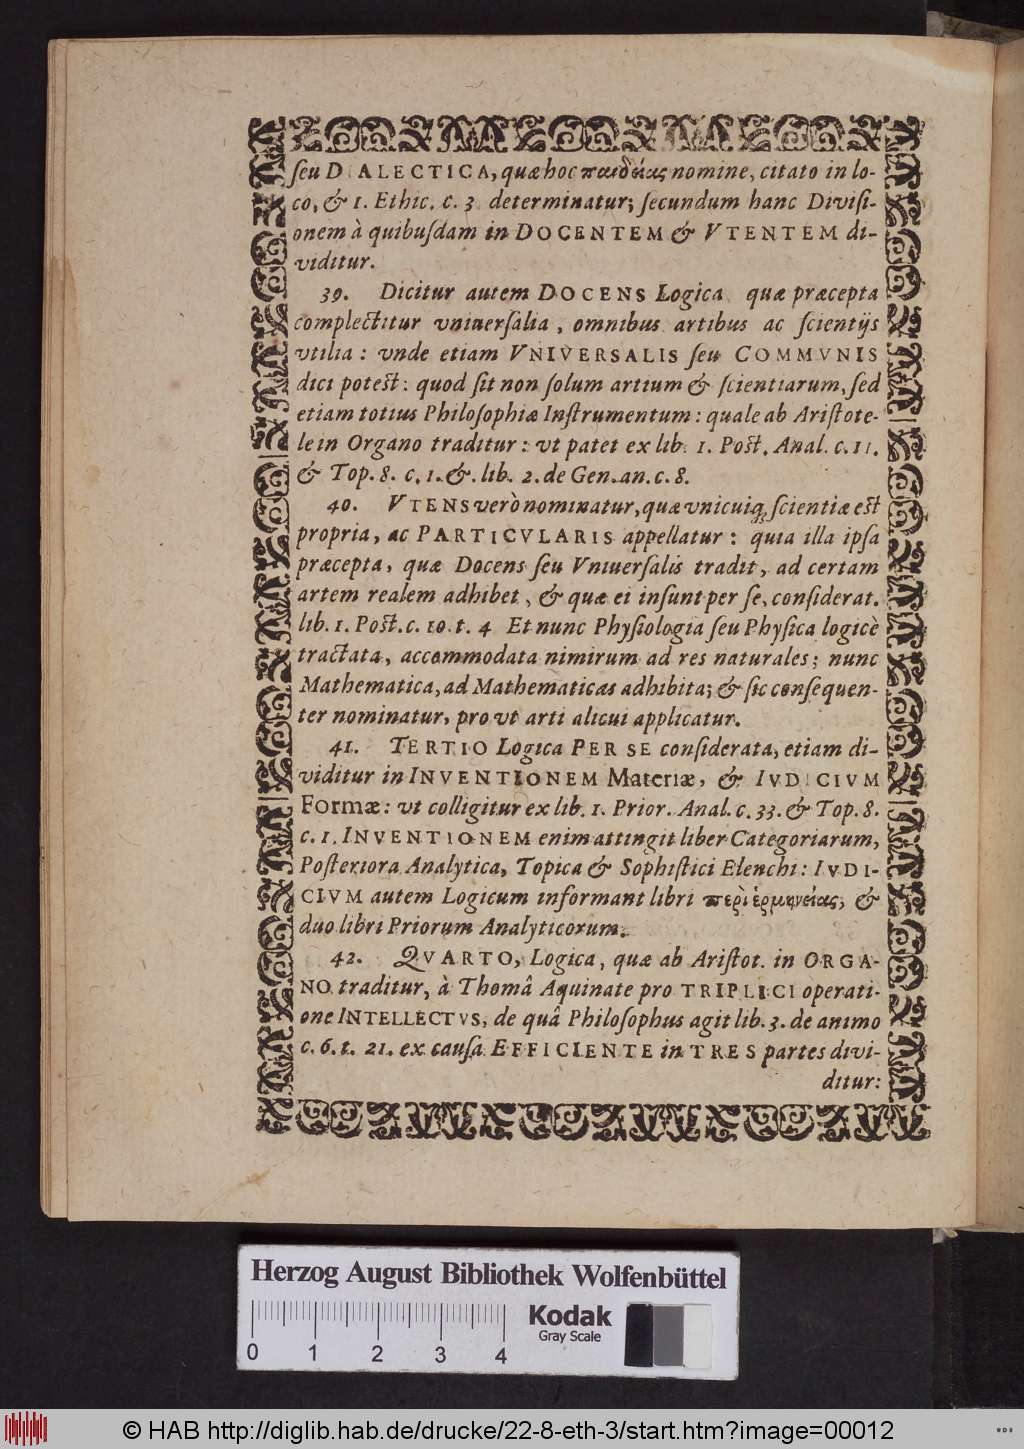 ſeu DIALECTICA, quæ hoc παιδείας nomine, citato in lo-
co, & 1. Ethic. c. 3 determinatur; ſecundum hanc Diviſi-
onem à quibuſdam in DOCENTEM & VTENTEM di-
viditur.
39. Dicitur autem DOCENS Logica quæ præcepta
complectitur vniuerſalia, omnibus artibus ac ſcientijs
vtilia: vnde etiam VNIVERSALIS ſeu COMMVNIS
dici poteſt: quod ſit non ſolum artium & ſcientiarum, ſed
etiam totius Philoſophiæ Inſtrumentum: quale ab Ariſtote-
le in Organo traditur: vt patet ex lib. 1. Poſt. Anal. c. 11.
& Top. 8. c. 1. &. lib. 2. de Gen. an. c. 8.
40. VTENS verò nominatur, quæ vnicuiq; ſcientiæ eſt
propria, ac PARTICVLARIS appellatur: quia illa ipſa
præcepta, quæ Docens ſeu Vniuerſalis tradit, ad certam
artem realem adhibet, & quæ ei inſunt per ſe, conſiderat.
lib. 1. Poſt. c. 10. t. 4 Et nunc Phyſiologia ſeu Phyſica logicè
tractata, accommodata nimirum ad res naturales; nunc
Mathematica, ad Mathematicas adhibita; & ſic conſequen-
ter nominatur, pro vt arti alicui applicatur.
41. TERTIO Logica PER SE conſiderata, etiam di-
viditur in INVENTIONEM Materiæ, & IVDICIVM
Formæ: vt colligitur ex lib. 1. Prior. Anal. c. 33. & Top. 8.
c. 1. INVENTIONEM enim attingit liber Categoriarum,
Poſteriora Analytica, Topica & Sophiſtici Elenchi: IVDI-
CIVM autem Logicum informant libri περὶ ἑρμηνείας, &
duo libri Priorum Analyticorum.
42. QVARTO, Logica, quæ ab Ariſtot. in ORGA-
NO traditur, à Thomâ Aquinate pro TRIPLICI operati-
one INTELLECTVS, de quâ Philoſophus agit lib. 3. de animo
c. 6. t. 21. ex cauſa EFFICIENTE in TRES partes divi-
ditur:
Herzog August Bibliothek Wolfenbüttel
Kodak
Gray Scale
0 1 2 3 4
© HAB http://diglib.hab.de/drucke/22-8-eth-3/start.htm?image=00012